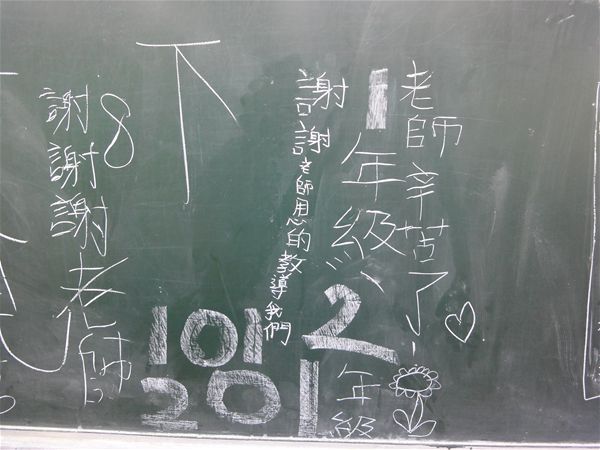 老師辛苦了!
1年級、2年級
謝謝老師用心的教導我們
下
8
謝謝謝老師
101
201